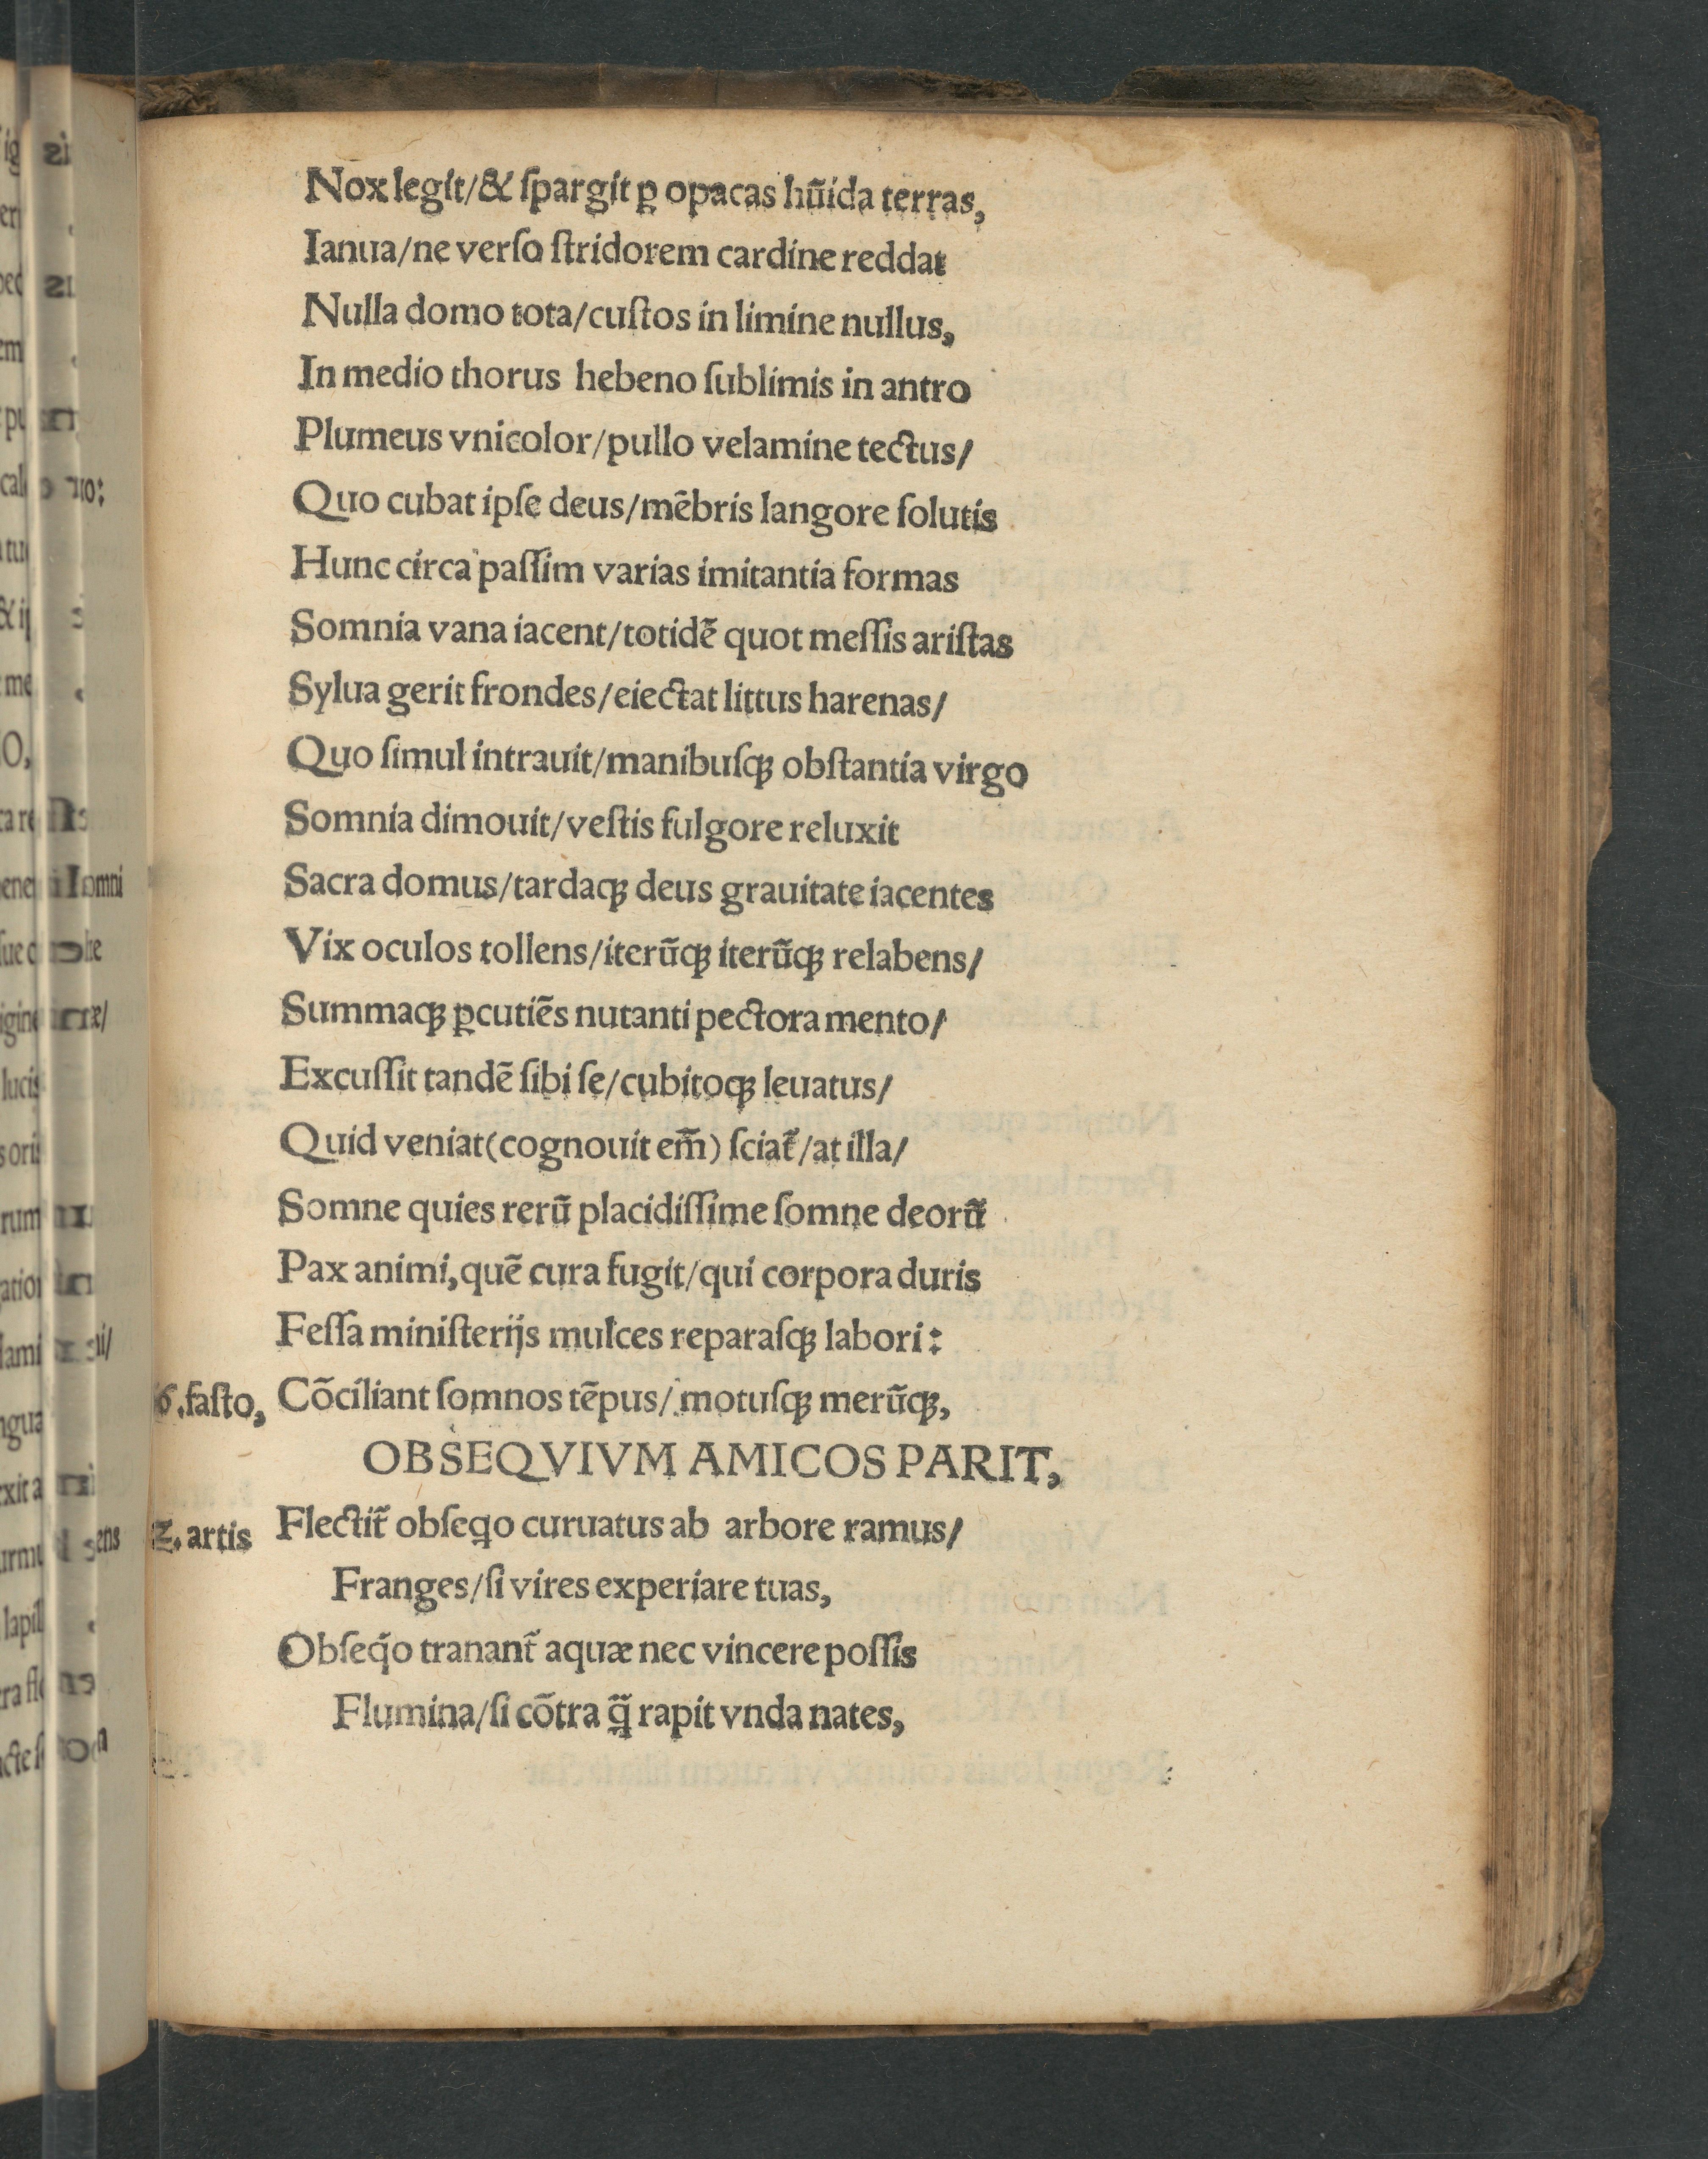 Nox legit/& ſpargit ꝑ opacas hũida terras,
Ianua/ne verſo ſtridorem cardine reddat
Nulla domo tota/cuſtos in limine nullus,
In medio thorus hebeno ſublimis in antro
Plumeus vnicolor/pullo velamine tectus/
Quo cubat ipſe deus/mẽbris langore ſolutis
Hunc circa paſſim varias imitantia formas
Somnia vana iacent/totidẽ quot meſſis ariſtas
Sylua gerit frondes/eiectat littus harenas/
Quo ſimul intrauit/manibuſqꝫ obſtantia virgo
Somnia dimouit/veſtis fulgore reluxit
Sacra domus/tardaqꝫ deus grauitate iacentes
Vix oculos tollens/iterũqꝫ iterũqꝫ relabens/
Summaqꝫ ꝑcutiẽs nutanti pectora mento/
Excuſſit tandẽ ſibi ſe/cubitoqꝫ leuatus/
Quid veniat(cognouit em̃) ſciat̃/at illa/
Somne quies rerũ placidiſſime ſomne deorũ
Pax animi,quẽ cura fugit/qui corpora duris
Feſſa miniſterijs mulces reparaſqꝫ labori:
6.faſto, Cõciliant ſomnos tẽpus/motuſqꝫ merũqꝫ,
OBSEQVIVM AMICOS PARIT,
2. artis Flectit̃ obſeqo curuatus ab arbore ramus/
Franges/ſi vires experiare tuas,
Obſeq̃o tranant̃ aquæ nec vincere poſſis
Flumina/ſi cõtra q̃ rapit vnda nates,